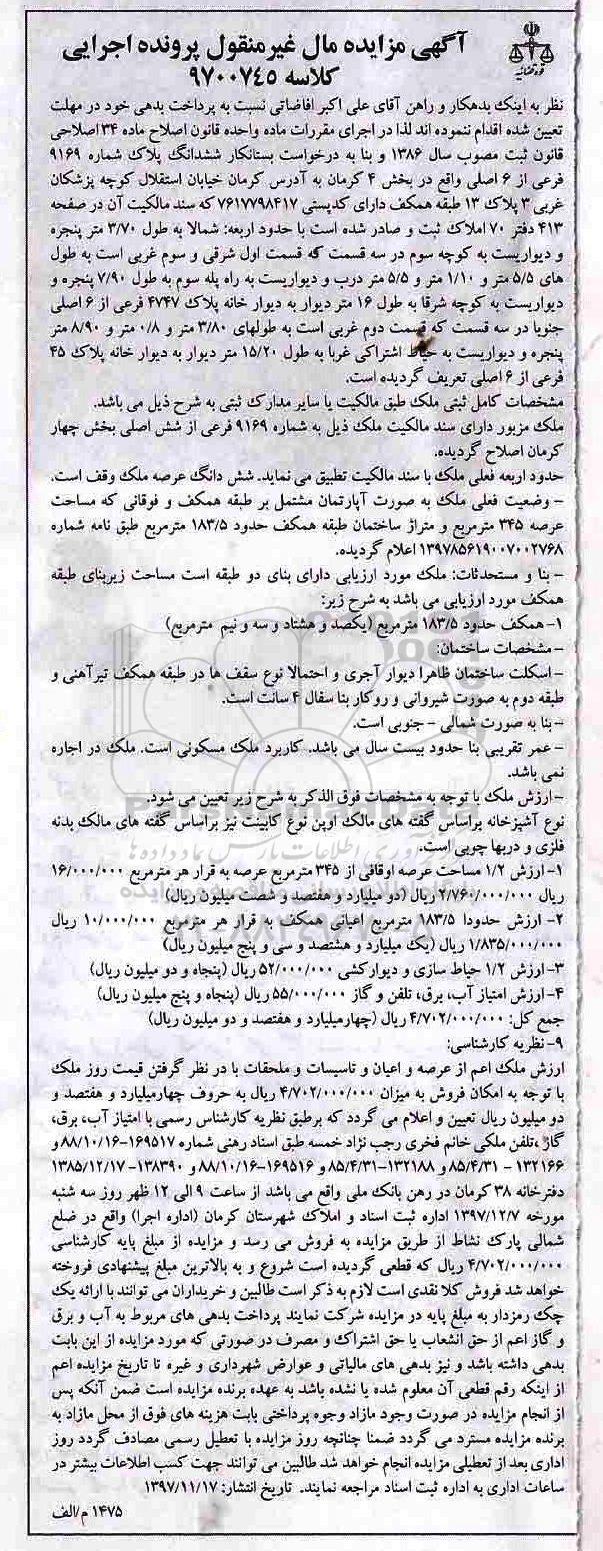 آگهی مزایده مال غیرمنقول پرونده اجرایی
کلاسه ۹۷۰۰۷۴۵
قوه قضائیه
نظر به اینک بدهکار و راهن آقای علی اکبر افاضاتی نسبت به پرداخت بدهی خود در مهلت
تعیین شده اقدام ننموده اند لذا در اجرای مقررات ماده واحده قانون اصلاح ماده ۳۴ اصلاحی
قانون ثبت مصوب سال ۱۳۸۶ و بنا به درخواست بستانکار ششدانگ پلاک شماره ۹۱۶۹
فرعی از ۶ اصلی واقع در بخش ۴ کرمان به آدرس کرمان خیابان استقلال کوچه پزشکان
غربی ۳ پلاک ۱۳ طبقه همکف دارای کدپستی ۷۶۱۷۷۹۸۴۱۷ که سند مالکیت آن در صفحه
۴۱۳ دفتر ۷۰ املاک ثبت و صادر شده است با حدود اربعه: شمالا به طول ۳/۷۰ متر پنجره
و دیواریست به کوچه سوم در سه قسمت که قسمت اول شرقی و سوم غربی است به طول
های ۵/۵ متر و ۱/۱۰ متر و ۵/۵ متر درب و دیواریست به راه پله سوم به طول ۷/۹۰ پنجره و
دیواریست به کوچه شرقا به طول ۱۶ متر دیوار به دیوار خانه پلاک ۴۷۴۷ فرعی از ۶ اصلی
جنوبا در سه قسمت که قسمت دوم غربی است به طولهای ۳/۸۰ متر و ۰/۸ متر و ۸/۹۰ متر
پنجره و دیواریست به حیاط اشتراکی غربا به طول ۱۵/۲۰ متر دیوار به دیوار خانه پلاک ۴۵
فرعی از ۶ اصلی تعریف گردیده است.
مشخصات کامل ثبتی ملک طبق مالکیت یا سایر مدارک ثبتی به شرح ذیل می باشد.
ملک مزبور دارای سند مالکیت ملک ذیل به شماره ۹۱۶۹ فرعی از شش اصلی بخش چهار
کرمان اصلاح گردیده.
حدود اربعه فعلی ملک با سند مالکیت تطبیق می نماید. شش دانگ عرصه ملک وقف است.
- وضعیت فعلی ملک به صورت آپارتمان مشتمل بر طبقه همکف و فوقانی که مساحت
عرصه ۳۴۵ مترمربع و متراژ ساختمان طبقه همکف حدود ۱۸۳/۵ مترمربع طبق نامه شماره
۱۳۹۷۸۵۶۱۹۰۰۷۰۰۲۷۶۸ اعلام گردیده.
- بنا و مستحدثات: ملک مورد ارزیابی دارای بنای دو طبقه است مساحت زیربنای طبقه
همکف مورد ارزیابی می باشد به شرح زیر:
۱- همکف حدود ۱۸۳/۵ مترمربع (یکصد و هشتاد و سه و نیم مترمربع)
- مشخصات ساختمان:
- اسکلت ساختمان ظاهرا دیوار آجری و احتمالا نوع سقف ها در طبقه همکف تیرآهنی و
طبقه دوم به صورت شیروانی و روکار بنا سفال ۴ سانت است.
- بنا به صورت شمالی - جنوبی است.
- عمر تقریبی بنا حدود بیست سال می باشد. کاربرد ملک مسکونی است. ملک در اجاره
نمی باشد.
- ارزش ملک با توجه به مشخصات فوق الذکر به شرح زیر تعیین می شود.
نوع آشپزخانه براساس گفته های مالک اوپن نوع کابینت نیز براساس گفته های مالک بدنه
فلزی و دربها چوبی است.
۱- ارزش ۱/۲ مساحت عرصه اوقافی از ۳۴۵ مترمربع عرصه به قرار هر مترمربع ۱۶/۰۰۰/۰۰۰
ریال ۲/۷۶۰/۰۰۰/۰۰۰ ریال (دو میلیارد و هفتصد و شصت میلیون ریال)
۲- ارزش حدودا ۱۸۳/۵ مترمربع اعیانی همکف به قرار هر مترمربع ۱۰/۰۰۰/۰۰۰ ریال
۱/۸۳۵/۰۰۰/۰۰۰ ریال (یک میلیارد و هشتصد و سی و پنج میلیون ریال)
۳- ارزش ۱/۲ حیاط سازی و دیوارکشی ۵۲/۰۰۰/۰۰۰ ریال (پنجاه و دو میلیون ریال)
۴- ارزش امتیاز آب، برق، تلفن و گاز ۵۵/۰۰۰/۰۰۰ ریال (پنجاه و پنج میلیون ریال)
جمع کل: ۴/۷۰۲/۰۰۰/۰۰۰ ریال (چهارمیلیارد و هفتصد و دو میلیون ریال)
۹- نظریه کارشناسی:
ارزش ملک اعم از عرصه و اعیان و تاسیسات و ملحقات با در نظر گرفتن قیمت روز ملک
با توجه به امکان فروش به میزان ۴/۷۰۲/۰۰۰/۰۰۰ ریال به حروف چهارمیلیارد و هفتصد و
دو میلیون ریال تعیین و اعلام می گردد که برطبق نظریه کارشناس رسمی با امتیاز آب، برق،
گاز ،تلفن ملکی خانم فخری رجب نژاد خمسه طبق اسناد رهنی شماره ۱۶۹۵۱۷-۸۸/۱۰/۱۶ و
۱۳۲۱۶۶ - ۸۵/۴/۳۱ و ۱۳۲۱۸۸-۸۵/۴/۳۱ و ۱۶۹۵۱۶-۸۸/۱۰/۱۶ و ۱۳۸۳۹۰-۱۳۸۵/۱۲/۱۷
دفترخانه ۳۸ کرمان در رهن بانک ملی واقع می باشد از ساعت ۹ الی ۱۲ ظهر روز سه شنبه
مورخه ۱۳۹۷/۱۲/۷ اداره ثبت اسناد و املاک شهرستان کرمان (اداره اجرا) واقع در ضلع
شمالی پارک نشاط از طریق مزایده به فروش می رسد و مزایده از مبلغ پایه کارشناسی
۴/۷۰۲/۰۰۰/۰۰۰ ریال که قطعی گردیده است شروع و به بالاترین مبلغ پیشنهادی فروخته
خواهد شد فروش کلا نقدی است لازم به ذکر است طالبین و خریداران می توانند با ارائه یک
چک رمزدار به مبلغ پایه در مزایده شرکت نمایند پرداخت بدهی های مربوط به آب و برق
و گاز اعم از حق انشعاب یا حق اشتراک و مصرف در صورتی که مورد مزایده از این بابت
بدهی داشته باشد و نیز بدهی های مالیاتی و عوارض شهرداری و غیره تا تاریخ مزایده اعم
از اینکه رقم قطعی آن معلوم شده یا نشده باشد به عهده برنده مزایده است ضمن آنکه پس
از انجام مزایده در صورت وجود مازاد وجوه پرداختی بابت هزینه های فوق از محل مازاد به
برنده مزایده مسترد می گردد ضمنا چنانچه روز مزایده با تعطیل رسمی مصادف گردد روز
اداری بعد از تعطیلی مزایده انجام خواهد شد طالبین می توانند جهت کسب اطلاعات بیشتر در
ساعات اداری به اداره ثبت اسناد مراجعه نمایند. تاریخ انتشار: ۱۳۹۷/۱۱/۱۷
۱۴۷۵ م/الف